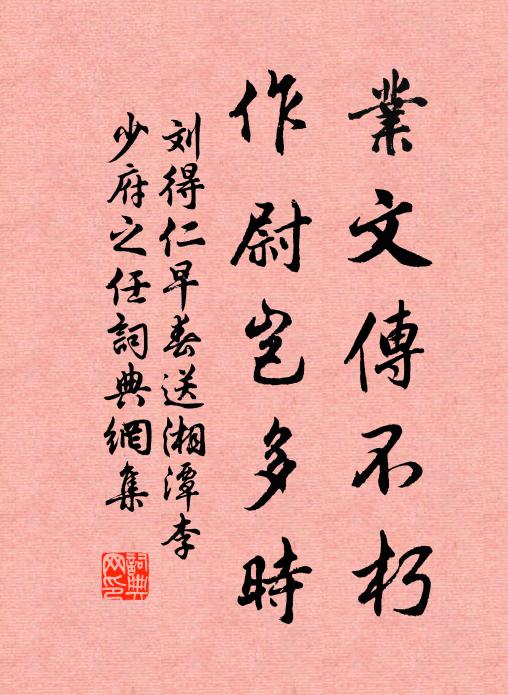 業文傳不朽
作尉岂多時
刘得仁早春送湘潭李
少府之任詞典網集
詞典
网印